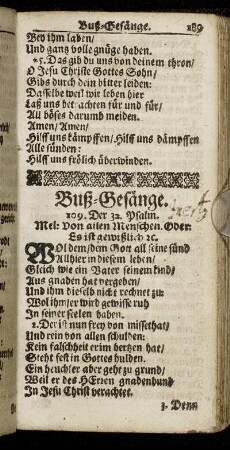 Buß-Gesänge. 189
Bey ihm laben/
Und gantz volle gnüge haben.
* 5. Das gib du uns von deinem thron/
O Jesu Christe Gottes Sohn/
Gibs durch dein bitter leiden:
Dasselbe weil wir leben hier
Laß uns betrachten für und für/
All böses darumb meiden.
Amen/ Amen/
Hilff uns kämpffen/ Hilff uns dämpffen
Alle sünden:
Hilff uns frölich überwinden.
Buß-Gesänge.
109. Der 32. Psalm.
Mel: Von allen Menschen. Oder:
Es ist gewißlich ꝛc.
WOl dem/ dem Gott all seine sünd
Allhier in diesem leben/
Gleich wie ein Vater seinem kind/
Aus gnaden hat vergeben/
Und ihm dieselb nicht rechnet zu:
Wol ihm/ er wird gewisse ruh
In seiner seelen haben.
2. Der ist nun frey von missethat/
Und rein von allen schulden:
Kein falschheit er im hertzen hat/
Steht fest in Gottes hulden.
Ein heuchler aber geht zu grund/
Weil er des HErren gnadenbund
In Jesu Christ verachtet.
3. Denn